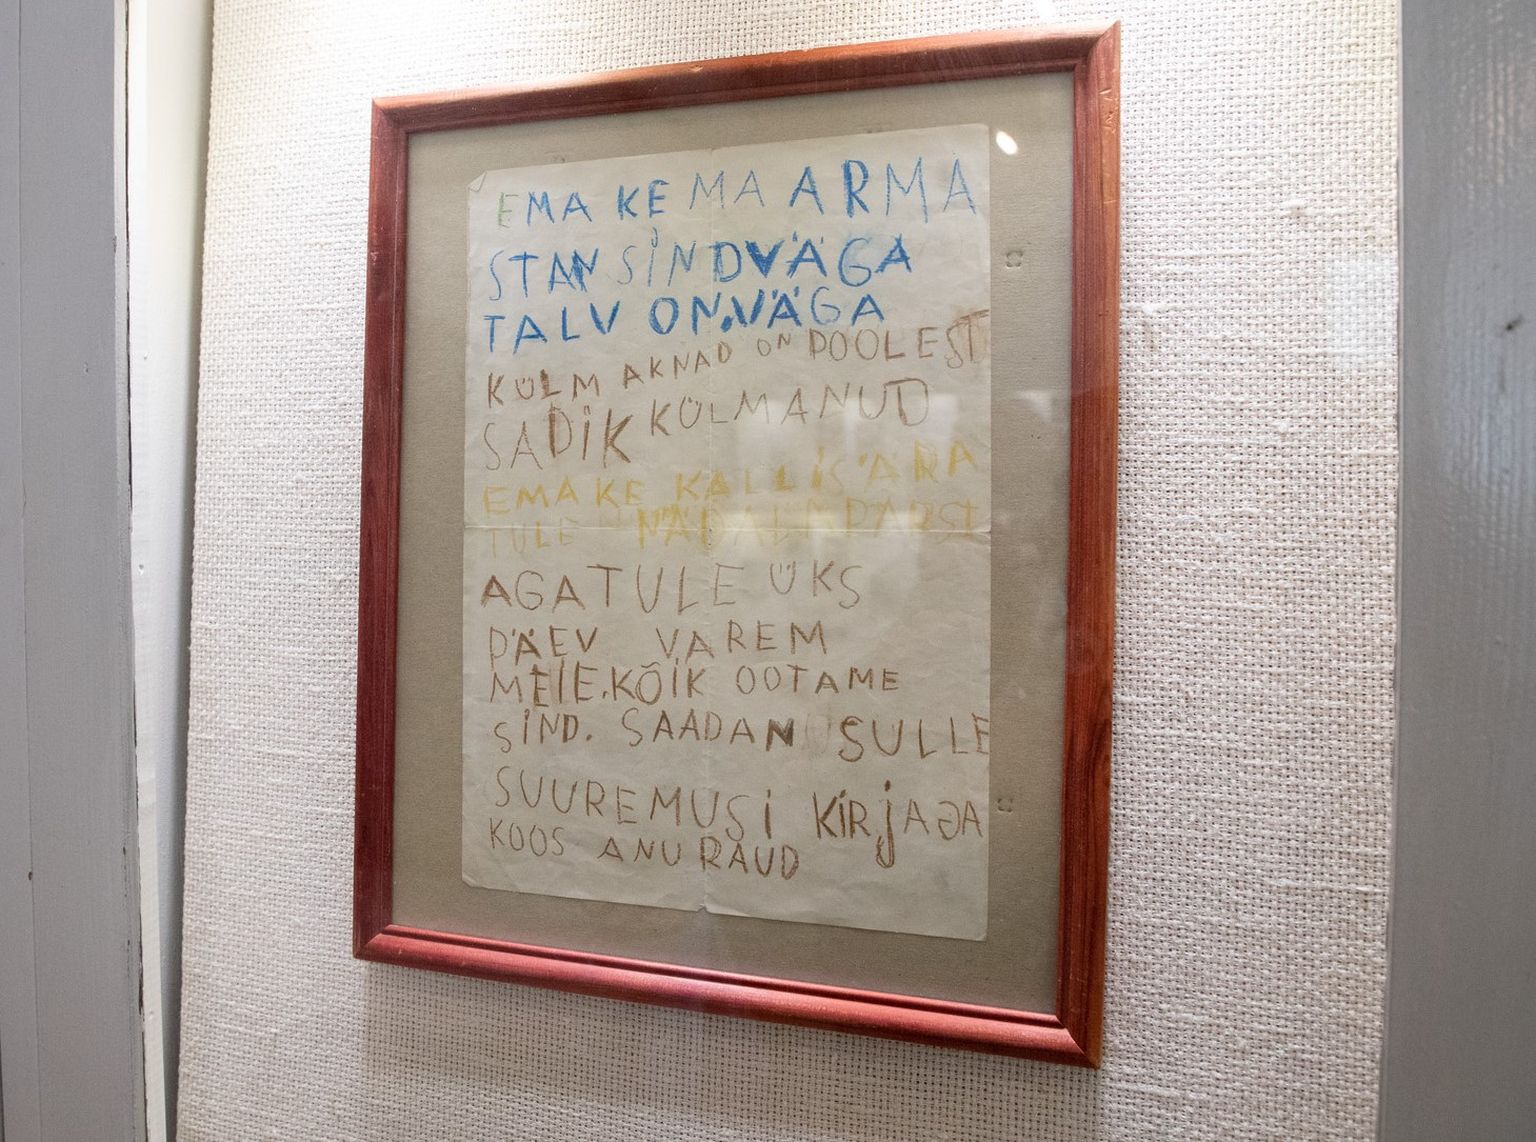 EMAKE MA ARMA
STAN SiND VÄGA
TALV ON.VÄGA
KÜLM AKNAD ON POOLEST
SADiK KÜLMANUD
EMAKE KALLiS ÄRA
TULE NÄDALAPÄRSI
AGA TULE ÜKS
PÄEV VAREM
MEIE.KÕIK OOTAME
SiND. SAADAN SULLE
SUURE MUSi KiRjAGA
KOOS ANU RAUD